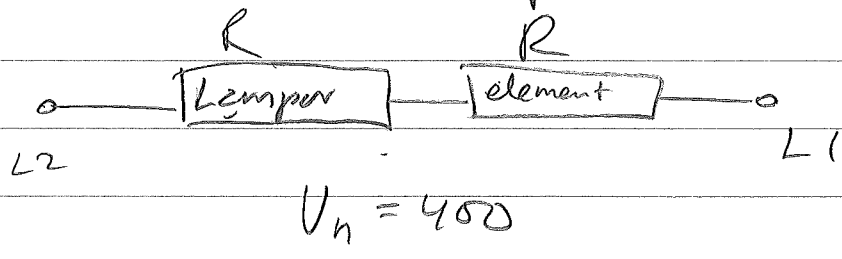 R R
Lampor element
L2 L1
Un = 400